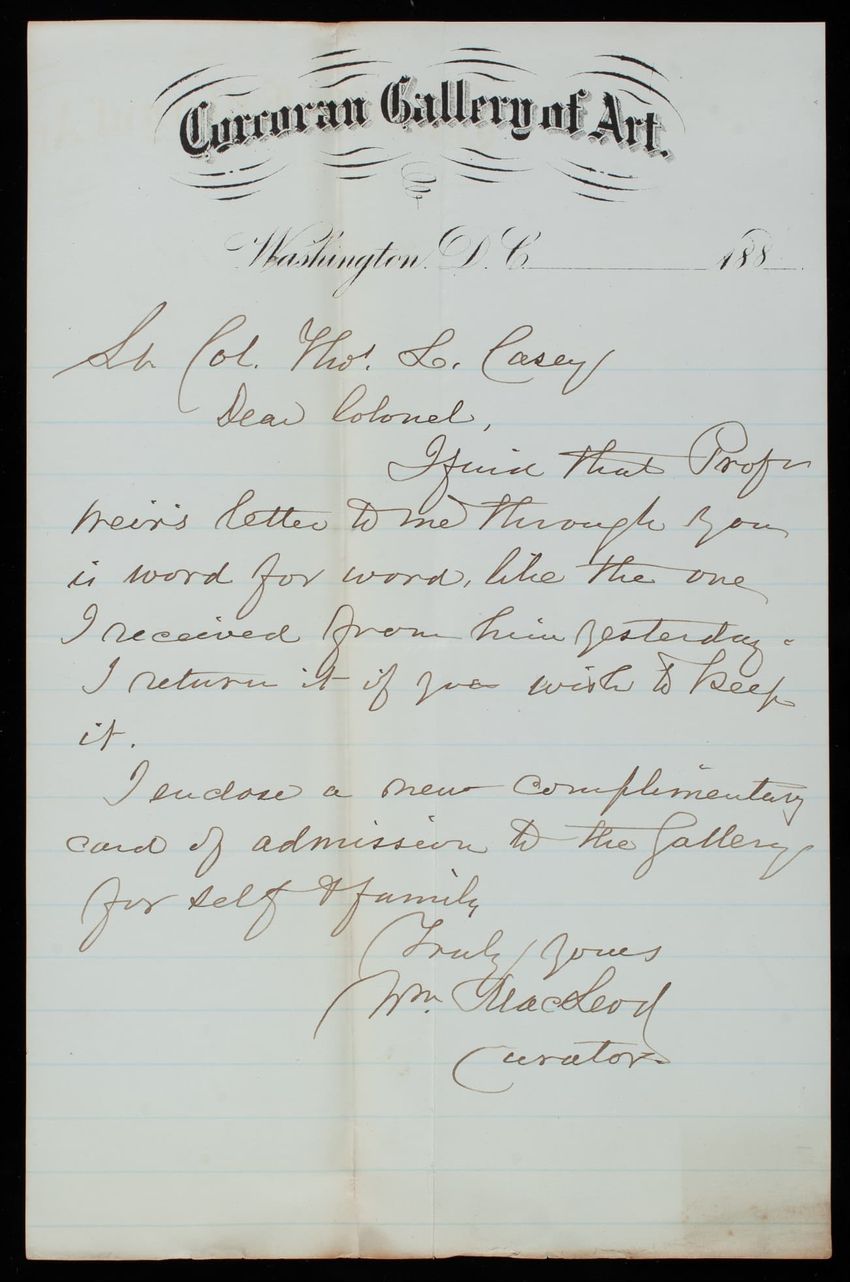 Corcoran Gallery of Art.
Washington. D. C. 188
Lt. Col. Thos. L. Casey
Dear Colonel,
I find that Profr
Weir's letter to me through you
is word for word, like the one
I received from him yesterday.
I return it if you wish to keep
it.
I enclose a new complimentary
card of admission to the Gallery
for self & family
Truly yours
Wm. MacLeod
Curator